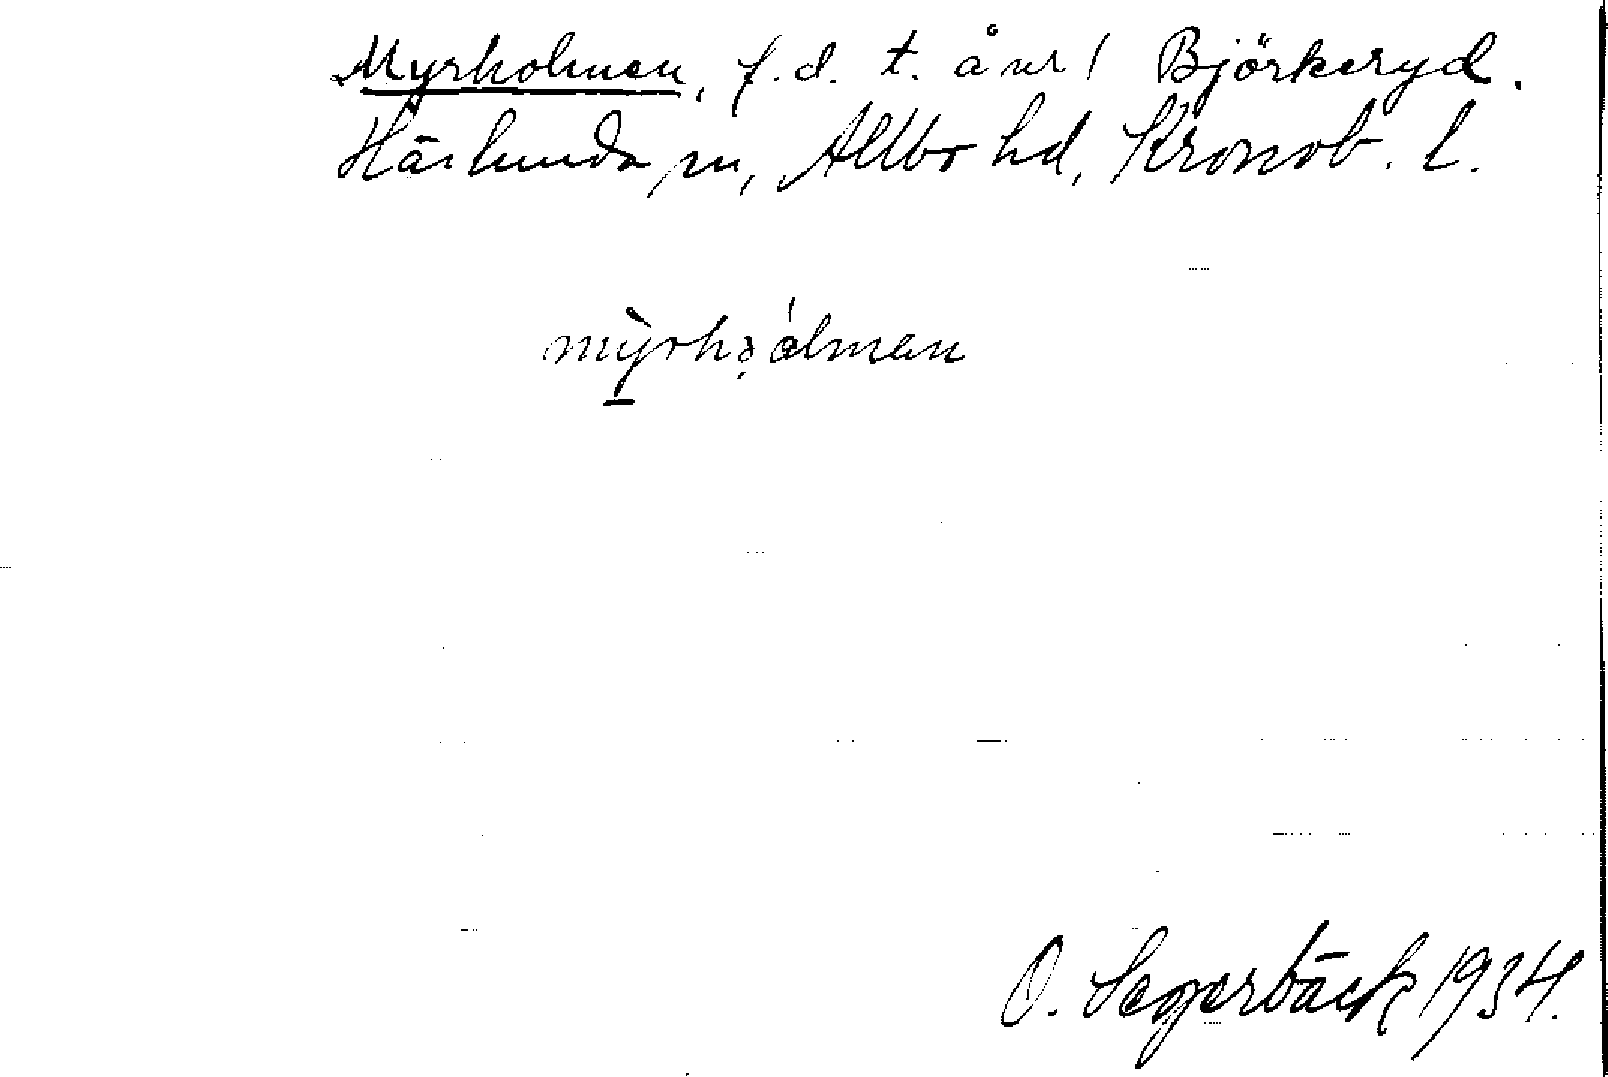 Myrholmen, f.d. t. å nr 1 Björkeryd.
Härlunda sn, Allbo hd, Kronob. l.
mỳrhólmen
O. Segerbäck 1934.